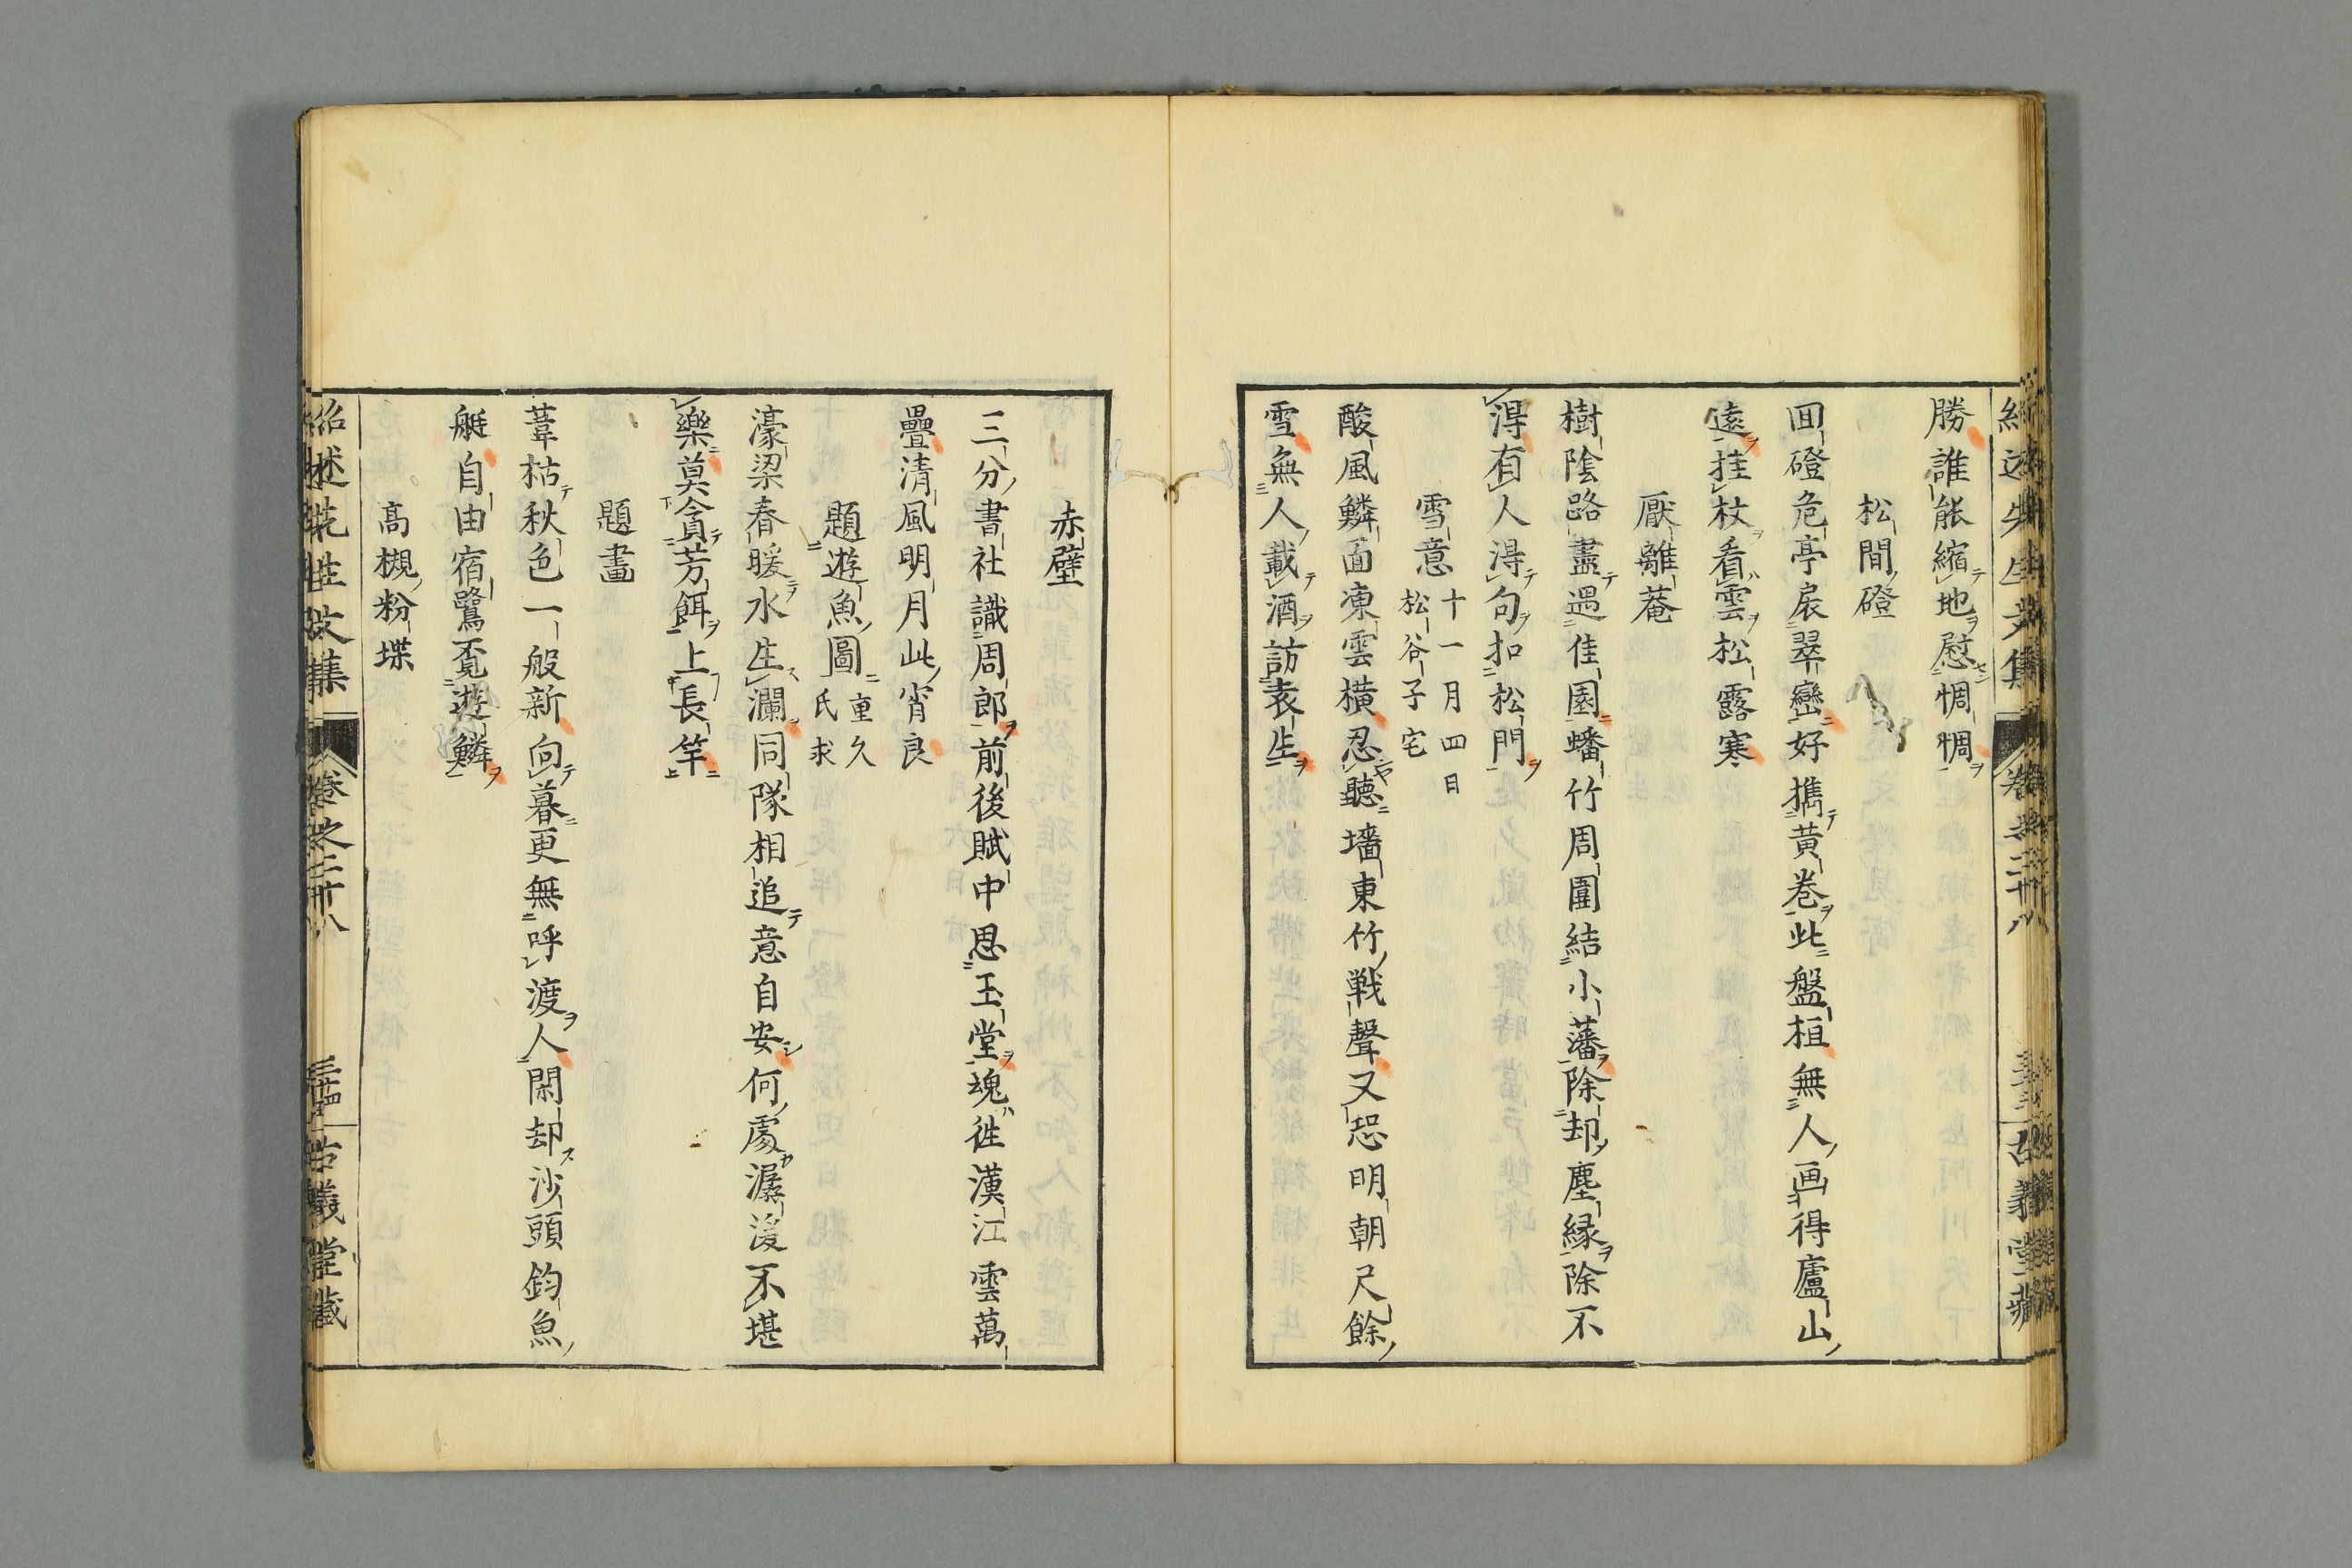 勝誰能縮地慰惆惆
松間磴
回磴危亭扆翠巒好擕黄巻此盤桓無人画得廬山
遠挂杖看雲松露寒
厭離菴
樹陰路盡遇佳園蟠竹周圍結小藩除却塵縁除不
得有人得句扣松門
雪意 十一月四日松谷子宅
酸風鱗面凍雲横忍聽墻東竹戦聲又恐明朝尺餘
雪無人載酒訪袁生
赤壁
三分書社識周郎前後賦中思玉堂魂徃漢江雲萬
疊清風明月此宵良
題遊魚圖 重久氏求
濠梁春暖水生瀾同隊相追意自安何處潺湲不堪
樂莫貪芳餌上長竿
題畫
葦枯秋色一般新向暮更無呼渡人閑却沙頭鈞魚
艇自由宿鷺覔遊鱗
高槻粉堞
紹述先生文集 卷之二十八 三十四 古義堂藏